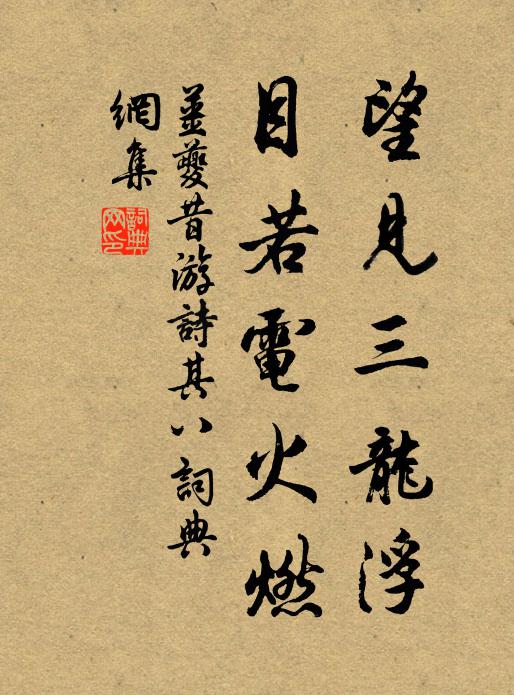 望見三龍浮
目若電火燃
姜夔昔游詩其八詞典
網集
詞典
网印